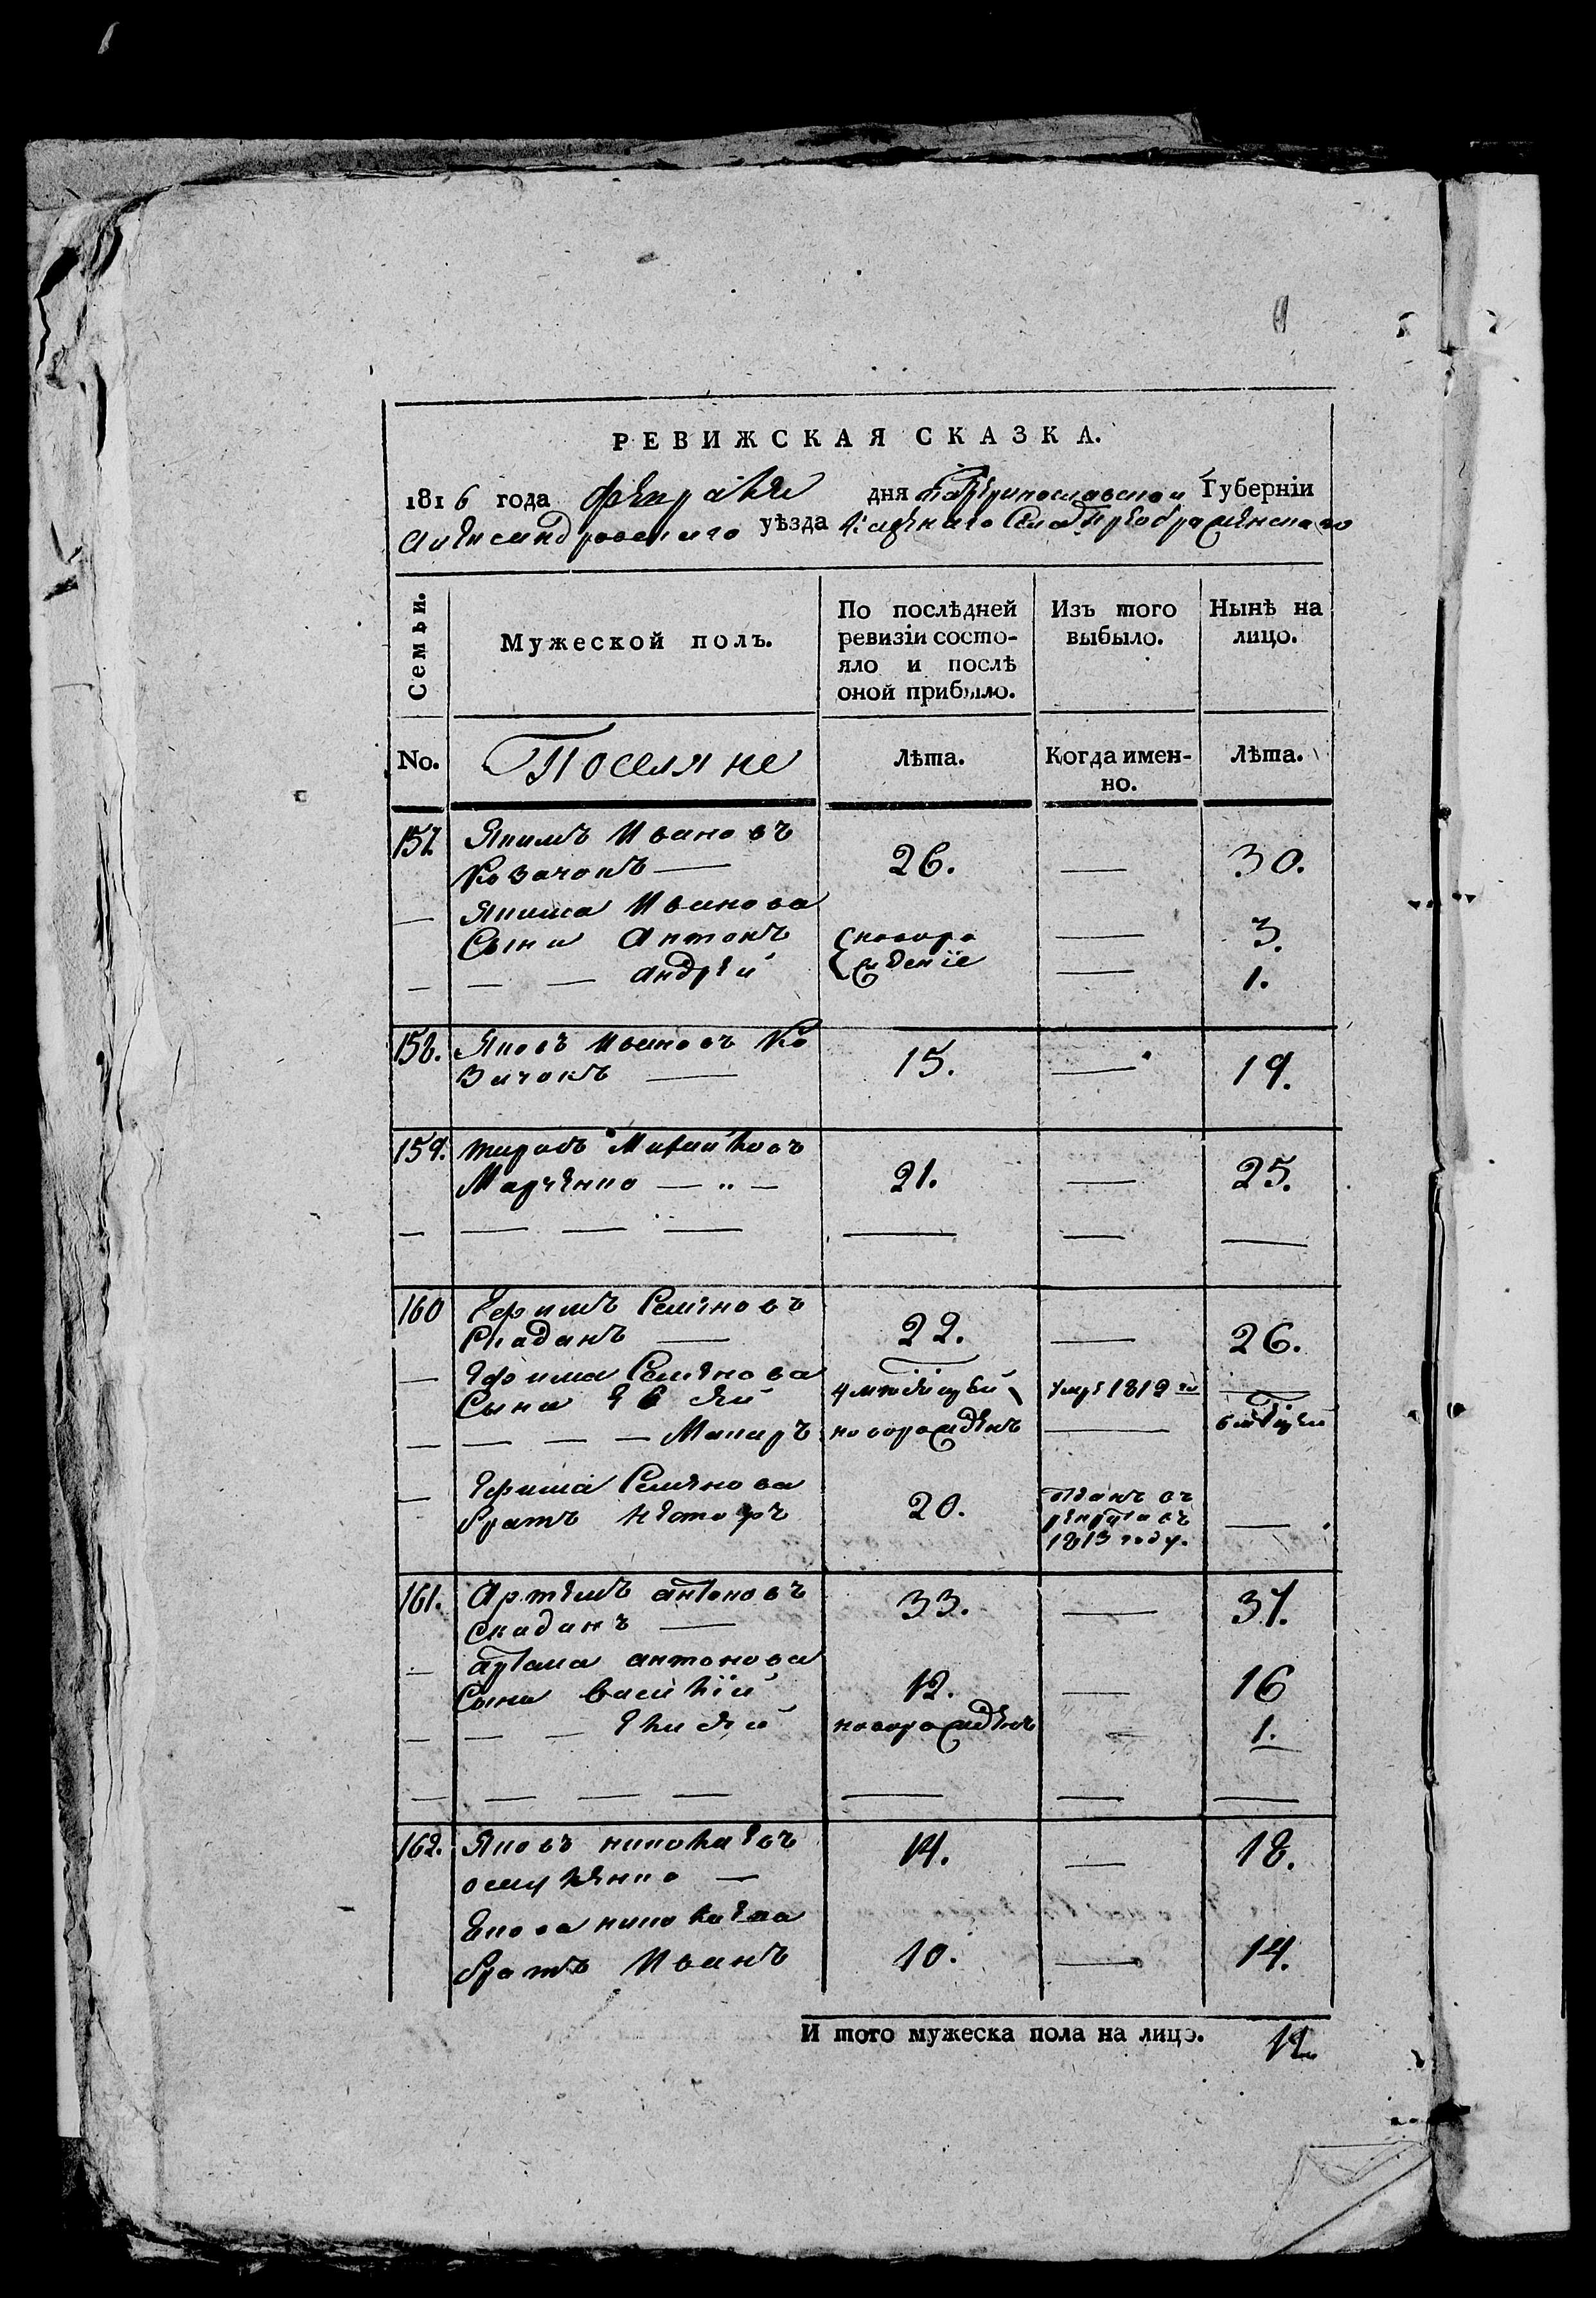 РЕВИЖСКАЯ СКАЗКА.
1816 года Февраля дня Екатеринославской Губерніи
Александровскаго уѣзда Казеннаго Села Преображенскаго
Семьи. Мужеской полъ. По послѣдней ревизіи состо-яло и послѣ оной прибыло. Изъ того выбыло. Нынѣ на лицо.
No. Поселяне Лѣта. Когда имен-но. Лѣта.
157. Якимъ Ивановъ
Козачокъ — 26. — 30.
— Якима Иванова
Сыны Антонъ новоро — 3.
— — — Андрей жденіе — 1.
158. Яковъ Ивановъ Ко
зачокъ — 15. — 19.
159. Тарасъ Михайловъ
Марченко — „ — 21. — 25.
— — — — — — —
160 Ефимъ Семеновъ
Скаданъ — 22. — 26.
— Ефима Семенова
Сыны Евсей 4 мѣсяцей умре 1812 го —
— — — — Макаръ новорожденъ — 6 мѣсяцей
— Ефима Семенова
братъ Несторъ 20. отданъ въ рекруты въ 1813 году. —
161. Артемъ Антоновъ
Скаданъ — 33. — 37.
— Артема Антонова
Сыны Василій 12. — 16
— — — Елисей новорожденъ — 1.
— — — — — — —
162. Яковъ Николаевъ
14. — 18.
Якова Николаева
братъ Иванъ 10. — 14.
И того мужеска пола на лицо. 12